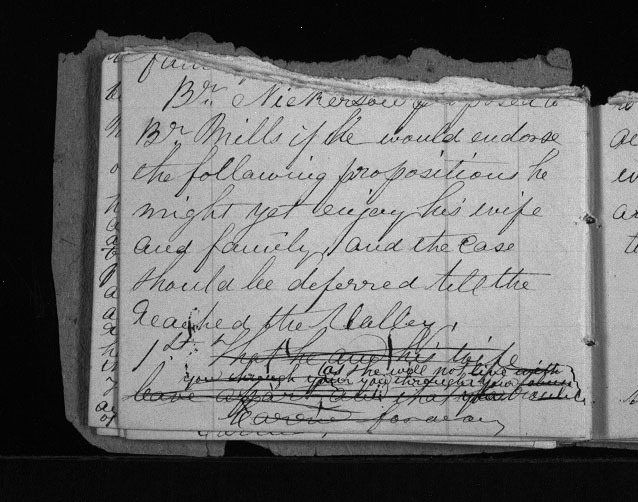 fam
Br. Nickerson proposed to
Br Mills if he would endorse
the following propositions he
might yet enjoy his wife
and family, and the case
should be deferred till the
reached the Valley.
1st. That he and his wife
(as she will not live with
you through your
leave apart and that
Garvin for away